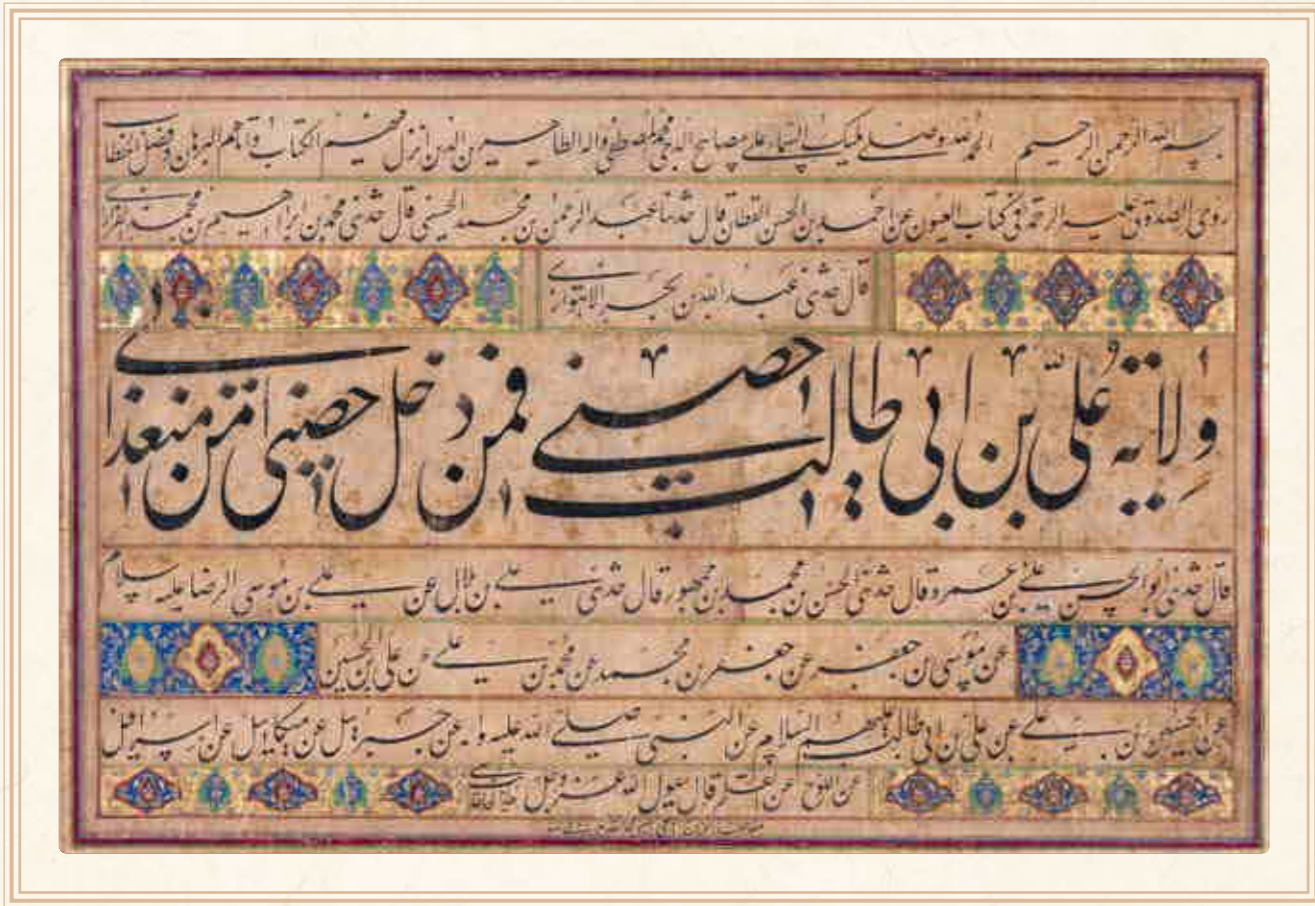 بسم الله الرحمن الرحیم الحمد لله وصلی ملیک السماء علی مصابیح الدجی محمد المصطفی واله الطاهرین الذین انزل فیهم الکتاب واتاهم البرهان وفصل الخطاب
روی الصدوق علیه الرحمة فی کتاب العیون عن احمد بن الحسن القطان قال حدثنا عبد الرحمن بن محمد الحسنی قال حدثنی محمد بن ابراهیم بن محمد الفزاری
قال حدثنی عبد الله بن بحر الاهوازی
ولایة علی بن ابی طالب حصنی فمن دخل حصنی امن من عذابی
قال حدثنی ابو الحسن علی بن عمرو قال حدثنی الحسن بن محمد بن جمهور قال حدثنی علی بن بلال عن علی بن موسی الرضا علیه سلام
عن موسی بن جعفر عن جعفر بن محمد عن محمد بن علی عن علی بن الحسین
عن الحسین بن علی عن علی بن ابی طالب علیهم السلام عن النبی صلی الله علیه واله عن جبرئیل عن میکائیل عن اسرافیل
عن اللوح عن القلم قال یقول الله عز وجل